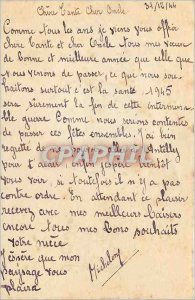 31/12/44
Chère Tante Cher Oncle
Comme tous les ans je viens vous offrir
Chère Tante et cher Oncle tous mes vœux
de bonne et meilleure année que celle que
nous venons de passer, ce que nous sou-
haitons surtout c'est la santé. 1945
sera sûrement la fin de cette intermina
ble guerre Comme nous serions contents
de passer ces fêtes ensembles. J'ai bien
regretté de Antilly
jour
vous voir, si toutefois il n'y a pas
contre ordre. En attendant ce plaisir
recevez avec mes meilleurs baisers
encore tous mes bons souhaits
Votre nièce
J'espère que mon
paysage vous
plaira